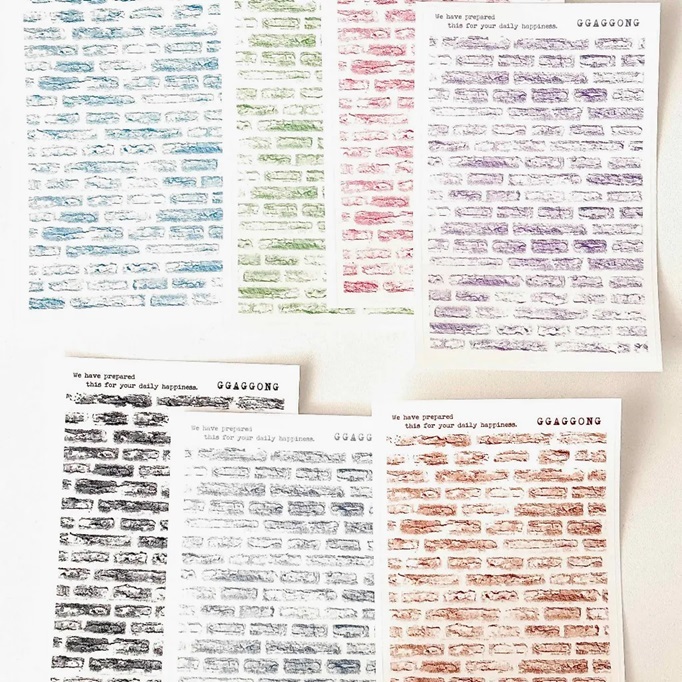 We have prepared
this for your daily happiness. GGAGGONG
We have prepared
this for your daily happiness. GGAGGONG
We have prepared
this for your daily happiness. GGAGG
We have prepared
this for your daily happiness. GGAGGONG